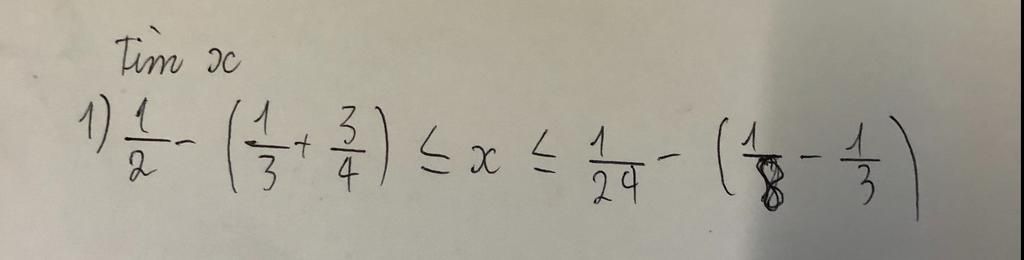 Tìm x
1) 1/2 - (1/3 + 3/4) ≤ x ≤ 1/24 - (1/8 - 1/3)